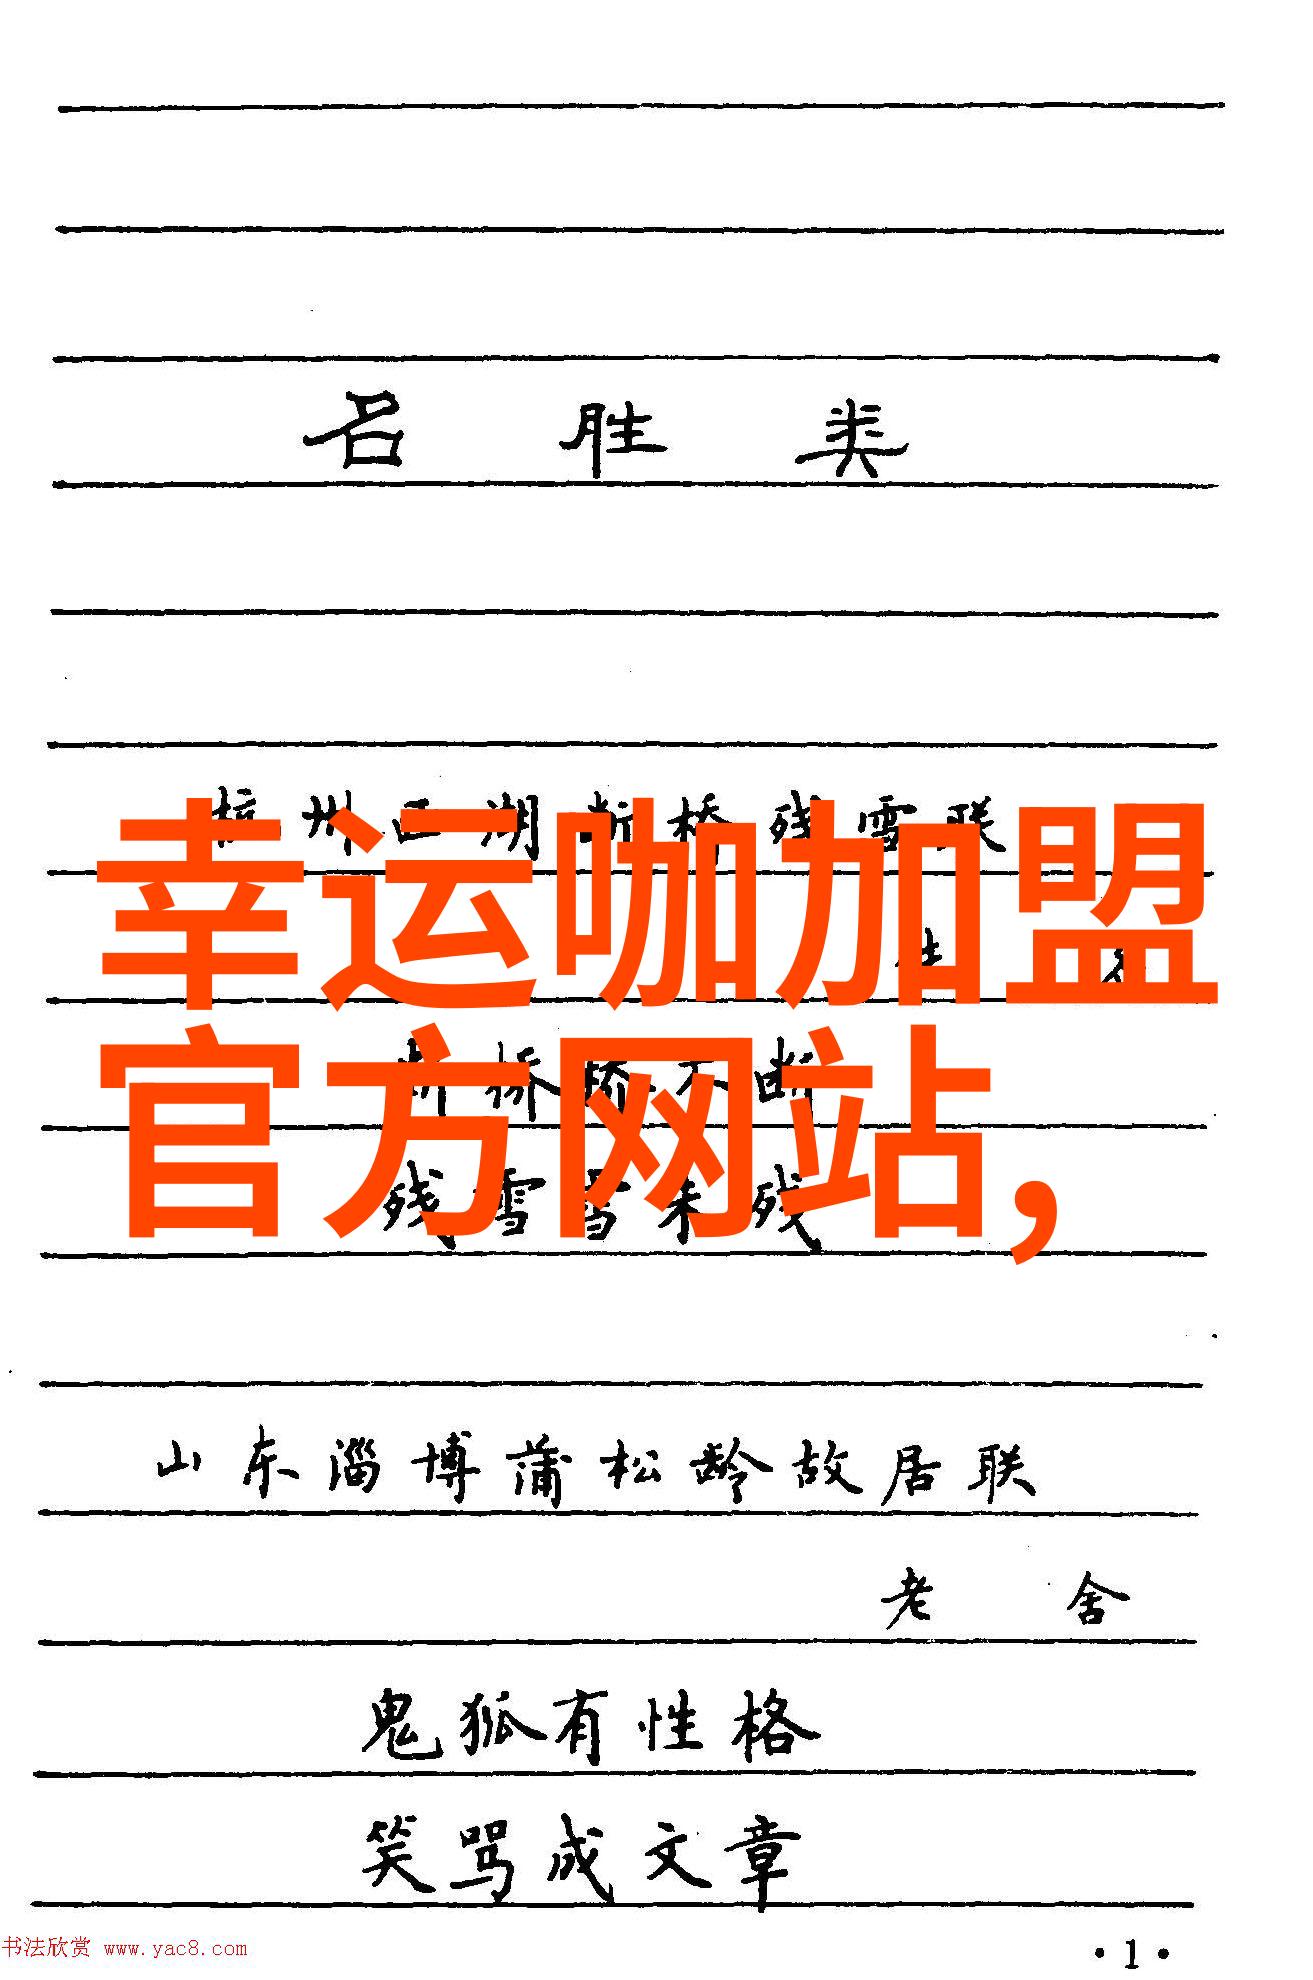 名胜类
杭州西湖断桥残雪联
幸运咖加盟
官方网站,
断桥桥不断
残雪雪未残
山东淄博蒲松龄故居联
老舍
鬼狐有性格
笑骂成文章
书法欣赏 www.yac8.com
·1·